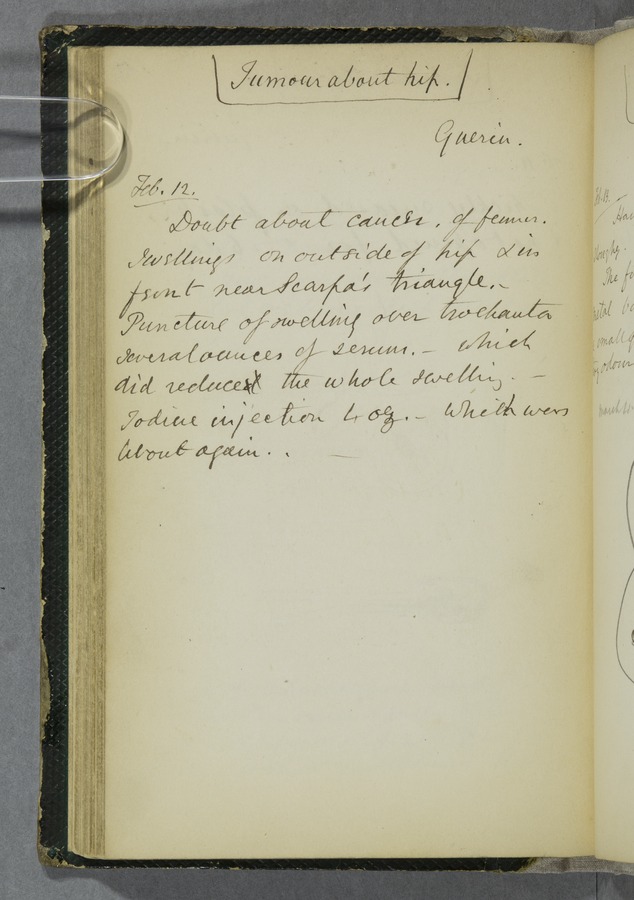 Tumour about hip.
Guerin.
Feb. 12.
Doubt about cancer, of femur.
Swellings on outside of hip & in
front near Scarpa's triangle.-
Puncture of swelling over trochanter
several ounces of serum. - which
did reduced the whole swelling. -
Iodine injection 4 oz. - which
about again. . -